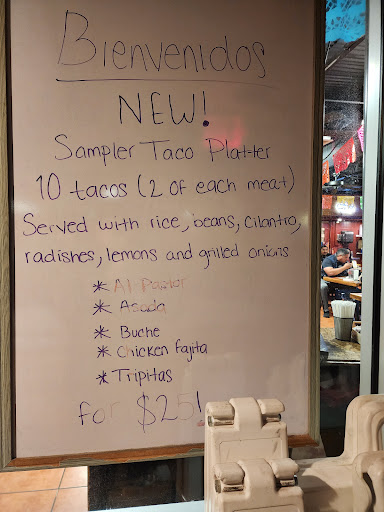 Bienvenidos
NEW!
Sampler Taco Platter
10 tacos (2 of each meat)
Served with rice, beans, cilantro,
radishes, lemons and grilled onions
* Al Pastor
* Asada
* Buche
* Chicken fajita
* Tripitas
for $25!